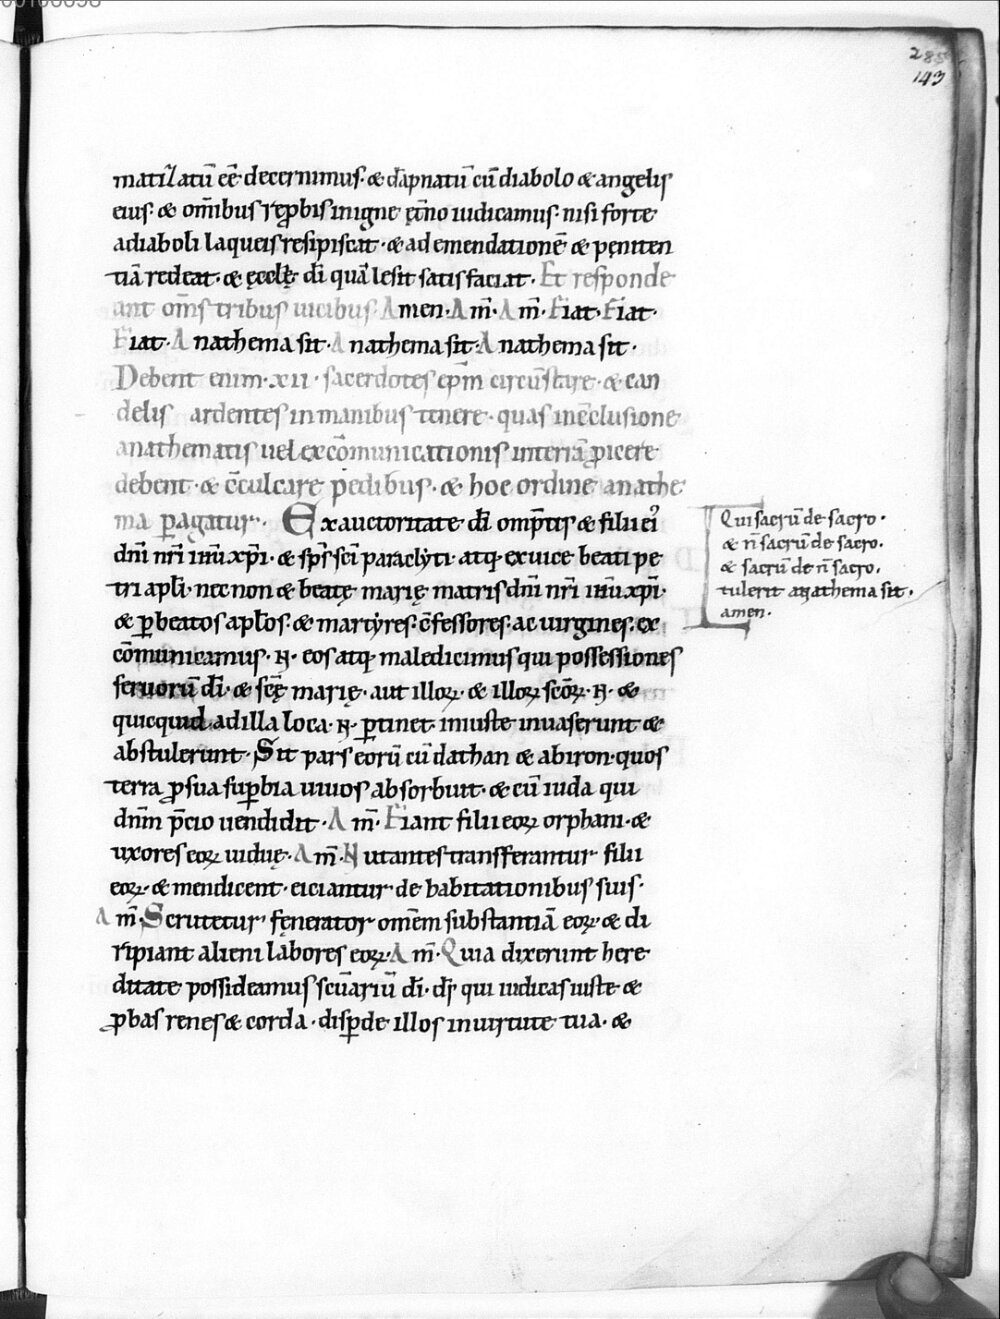 285
143
matizatū eē decernimus· & dāpnatū cū diabolo & angelis
eius· & om̄ibus rep̄bis in igne et̄no iudicamus· nisi forte
a diaboli laqueis resipiscat· & ad emendationē & peniten
tiā redeat· & ęcclę dī quā lesit satisfaciat· Et responde
ant om̄s tribus uicibus Amen· Am̄· Am̄· Fiat· Fiat·
Fiat· Anathema sit· Anathema sit· Anathema sit·
Debent enim· xii· sacerdotes ep̄m circūstare· & can
delis ardentes in manibus tenere· quas in c̄clusione
anathematis uel excōmunicationis in terrā ꝓicere
debent· & c̄culcare pedibus· & hoc ordine anathe
ma ꝑagatur· Ex auctoritate dī omp̄tis & filii ei᾽
dn̄i nr̄i ihū xp̄i· & sp̄s sc̄i paraclyti· atq· ex uice beati pe
tri apl̄i· nec non & beatę marię matris dn̄i nr̄i ihū xp̄i·
& ꝑ beatos apl̄os· & martyres· c̄fessores· ac uirgines· ex
cōmunicamus· N̄· eos atq· maledicimus qui possessiones
seruorū dī· & sc̄ę marię· aut illoꝝ· & illoꝝ sc̄oꝝ· N̄· &
quicquid ad illa loca· N̄· ꝑtinet· iniuste inuaserunt &
abstulerunt· Sit pars eorū cū dathan & abiron· quos
terra ꝓ sua suꝑbia uiuos absorbuit· & cū iuda qui
dn̄m p̄cio uendidit· Am̄· Fiant filii eoꝝ orphani· &
uxores eoꝝ uiduę· Am̄· Nutantes transferantur filii
eoꝝ· & mendicent· eiciantur de habitationibus suis·
Am̄· Scrutetur fęnerator omēm substantiā eoꝝ· & di
ripiant alieni labores eoꝝ· Am̄· Quia dixerunt here
ditate possideamus sc̄uariū dī· ds̄ qui iudicas iuste &
ꝓbas renes & corda· disꝑde illos in uirtute tua· &
Qui sacrū de sacro·
& n̄ sacrū de sacro·
& sacrū de n̄ sacro·
tulerit anathema sit·
amen·